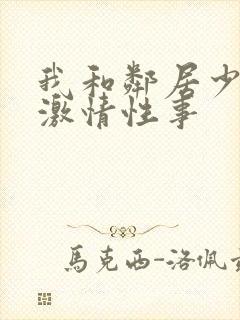 我和鄰居少
激情性事
馬克西-洛佩